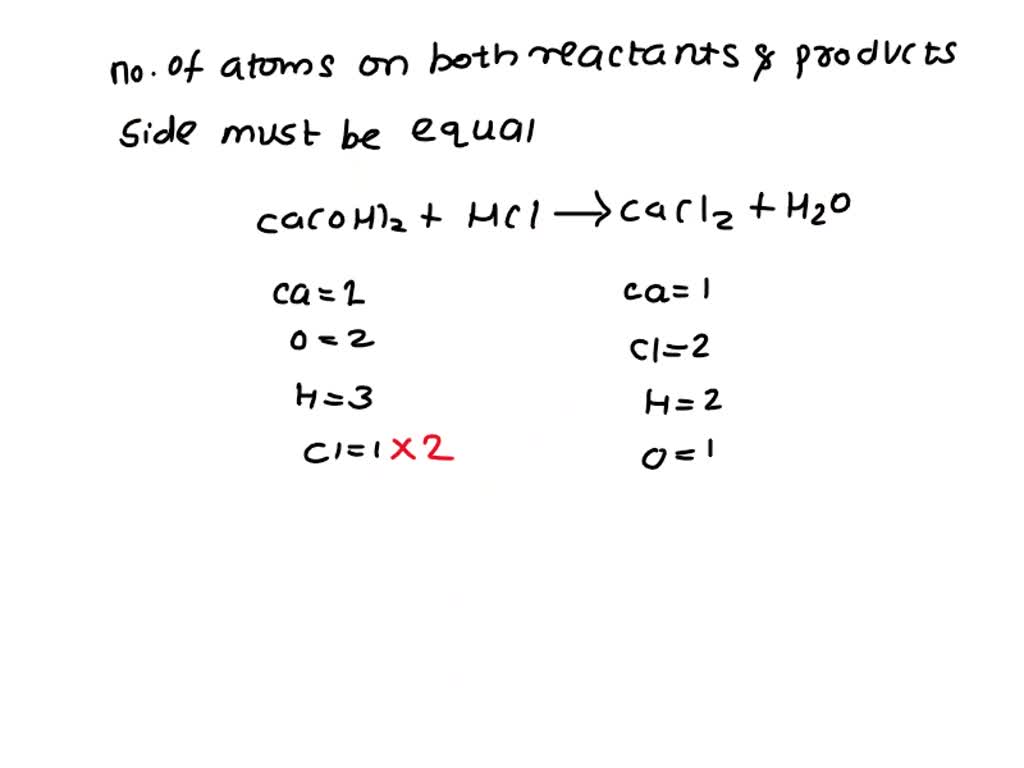 no. of atoms on both reactants & products
Side must be equal
Ca(OH)2 + HCl → CaCl2 + H2O
Ca = 2 Ca = 1
O = 2 Cl = 2
H = 3 H = 2
Cl = 1 × 2 O = 1